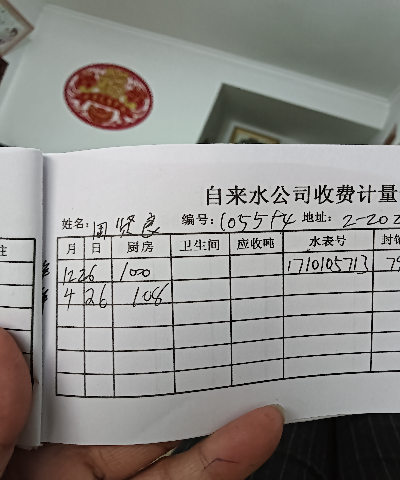 自来水公司收费计量
姓名: 田贤良 编号: 105514 地址: 2-202
注 月 日 厨房 卫生间 应收吨 水表号 封铅
12 26 1000 1710105713 79
4 26 106